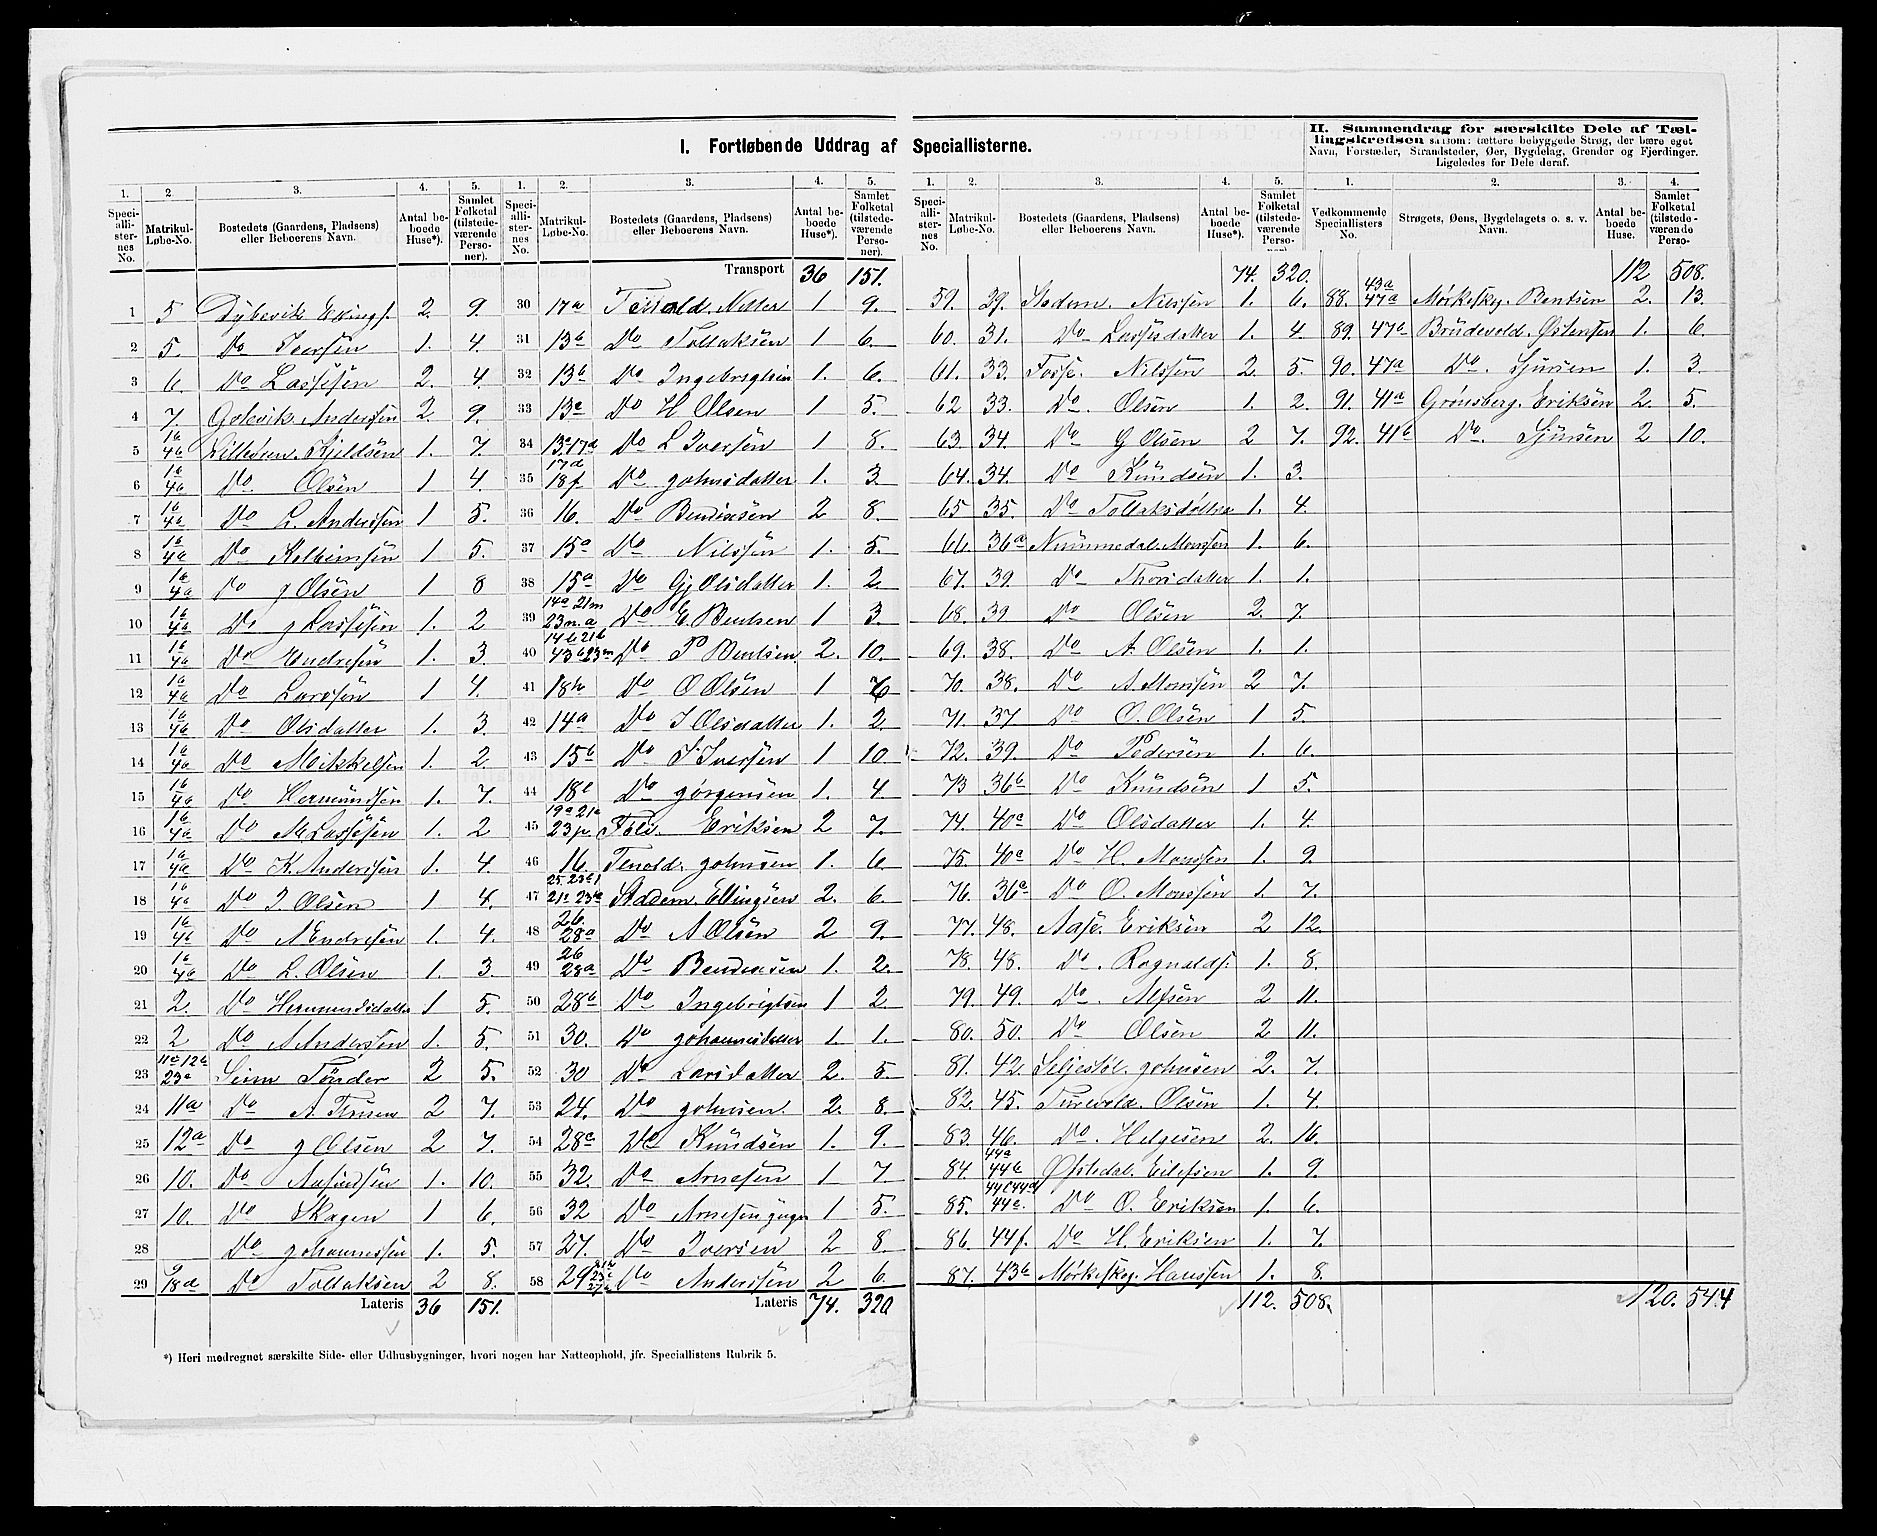 I. Fortløbende Uddrag af Speciallisterne.
II. Sammendrag for særskilte Dele af Tæl-
lingskredsen saasom: tættere bebyggede Strøg, der bære eget
Navn, Forstæder, Strandsteder, Øer, Bygdelag, Grender og Fjerdinger.
Ligeledes for Dele deraf.
1. 2. 3. 4. 5. 1. 2. 3. 4. 5.
Speciallisternes No. Matrikul-Løbe-No. Bostedets (Gaardens, Pladsens) eller Beboerens Navn. Antal beboede Huse*). Samlet Folketal (tilstedeværende Personer).
Speciallisternes No. Matrikul-Løbe-No. Bostedets (Gaardens, Pladsens) eller Beboerens Navn. Antal beboede Huse*). Samlet Folketal (tilstedeværende Personer).
1 5 Dybevik Ellings. 2. 9.
2 5. Do Iversen 1. 4.
3 6. Do Lassesen 2. 4.
4 7. Golevik Anderssen 2. 9.
5 1b 4a Kjeldsen 1. 7.
6 1b 4a Do Olsen 1 4.
7 1b 4a Do L. Anderssen 1 5.
8 1b 4a Do Kolbeinsen 1 5.
9 1b 4a Do J Olsen 1 8
10 1b 4a Do J Lassesen 1. 2
11 1b 4a Do Endresen 1. 3.
12 1b 4a Do Larssen 1 4.
13 1b 4b Do Olsdatter 1. 3.
14 1b 4a Do Mikkelsen 1. 2.
15 1b 4a Do Hermundsen 1. 7.
16 1b 4a Do M Lassesen 1. 2
17 1b 4a Do K. Anderssen 1. 4.
18 1b 4a Do I. Olsen 1 4.
19 1b 4b Do A Endresen 1. 4.
20 1b 4b Do L. Olsen 1. 3.
21 2. Do Hermundsdatter 1 5.
22 2 Do A Andersen 1. 5.
23 11c 12b 23a Seim Tønder 2 5.
24 11a Do A. 2 7.
25 12a Do J Olsen 2 7.
26 10. Do 1. 10.
27 10. Do Skagen 1 6.
28 Do Johannessen 1. 5.
29 9 18d Do Tollaksen 2 8.
Lateris 36 151.
Transport 36 151.
30 17a Tenold. Netter 1 9.
31 13b Do Tollaksen 1 6.
32 13b Do Ingebrigtsen 1. 6.
33 13a Do H Olsen 1 5.
34 13a 17d Do L Iversen 1 8.
35 17d 18f Do Johnsdatter 1. 3.
36 16. Do Bendixsen 2 8.
37 15a Do Nilssen 1. 5.
38 15a Do Gj Olsdatter 1. 2.
39 14a 21m 23n.a Do E. Bentsen 1 3.
40 14b 21b 43b 23m Do P Bentsen 2. 10.
41 18h Do O Olsen 1 6
42 14a Do I Olsdatter 1. 2
43 15b Do I Iversen 1 10
44 18e Do Jørgensen 1. 4.
45 19a 21a 23p Eriksen 2 7.
46 16. Tenold. Johnsen 1. 6
47 Stadem Ellingsen 2. 6.
48 26. 28a Do A Olsen 2 9.
49 26 28a Do Bendixsen 1. 2.
50 28b Do Ingebrigtsen 1 2
51 30. Do Johannesdatter 1. 1.
52 30 Do Larsdatter 2. 5.
53 24. Do Johnsen. 2. 8.
54 28c Do Knudsen 1. 9.
55 32. Do Arnesen 1 7
56 32 Do Arnesen yngr 1 5.
57 27. Do Iversen 2 8.
58 29 Do Anderssen 2 6.
Lateris 74. 320
*) Heri medregnet særskilte Side- eller Udhusbygninger, hvori nogen har Natteophold, jfr. Speciallistens Rubrik 5.
1. 2. 3. 4. 5. 1. 2. 3. 4.
Speciallisternes No. Matrikul-Løbe-No. Bostedets (Gaardens, Pladsens) eller Beboerens Navn. Antal beboede Huse*). Samlet Folketal (tilstedeværende Personer).
Vedkommende Speciallisters No. Strøgets, Øens, Bygdelagets o. s. v. Navn. Antal beboede Huse. Samlet Folketal (tilstedeværende Perso-
74. 320.
59. 29. Stadem. Nilssen 1. 6.
60. 31. Do Lassesdatter 1. 4
61. 33. Fosse. Nilssen 2 5.
62 33. Do. Olsen 1. 2.
63 34. Do G Olsen 2 7.
64. 34. Do Knudsen 1. 3.
65 35. Do Tollaksdatter 1. 4.
66. 36a Nummedal. Monssen 1. 6.
67. 39. Do Thorsdatter 1. 1.
68. 39 Do Olsen 2. 7.
69. 38. Do A. Olsen 1. 1.
70. 38. Do A. Monssen 2 7.
71. 37 Do O. Olsen 1 5.
72. 39. Do Pedersen 1. 6.
73 36b Do Knudsen 1 5.
74. 40a Do Olsdatter 1. 4.
75. 40a Do H. Monssen 1. 9.
76. 36a Do O. Monssen 1. 7.
77. 48. Aase. Eriksen 2 12.
78. 48. Do. Ragnalds. 1. 8.
79. 49. Do. Alfsen 2 11.
80. 50. Do Olsen 2 11.
81. 42. Seljestøl. Johnsen 2. 7.
82. 45. Olsen 1. 4.
83. 46. Do. Helgesen 2. 16.
84. 44a 44b Østedal. Eilefsen 1. 9.
85. 44c 44d 44e. Do O. Eriksen 1. 6.
86. 44f. Do H. Eriksen 1. 7.
87. 43b Mørkeskog. Hanssen 1. 8.
112. 508.
112 508.
88. 43a 47a Mørkeskog. Bentsen 2. 13.
89. 47a Brudevold. Østensen 1. 6.
90. 47a Do. Sjursen 1. 3.
91. 41a Grønsberg. Eriksen 2. 5.
92. 41b Do. Sjursen 2 10.
120. 544